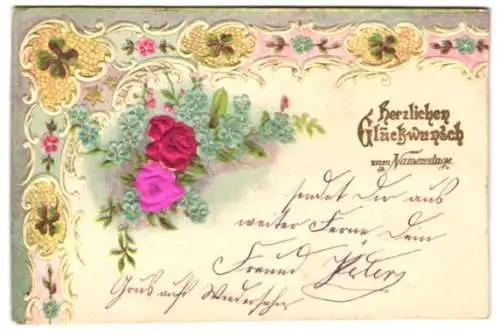 Herzlichen
Glückwunsch
zum Namenstage.
sendet Dir aus
weiter Ferne, Dein
Freund Peter
Gruß auf Wiedersehn